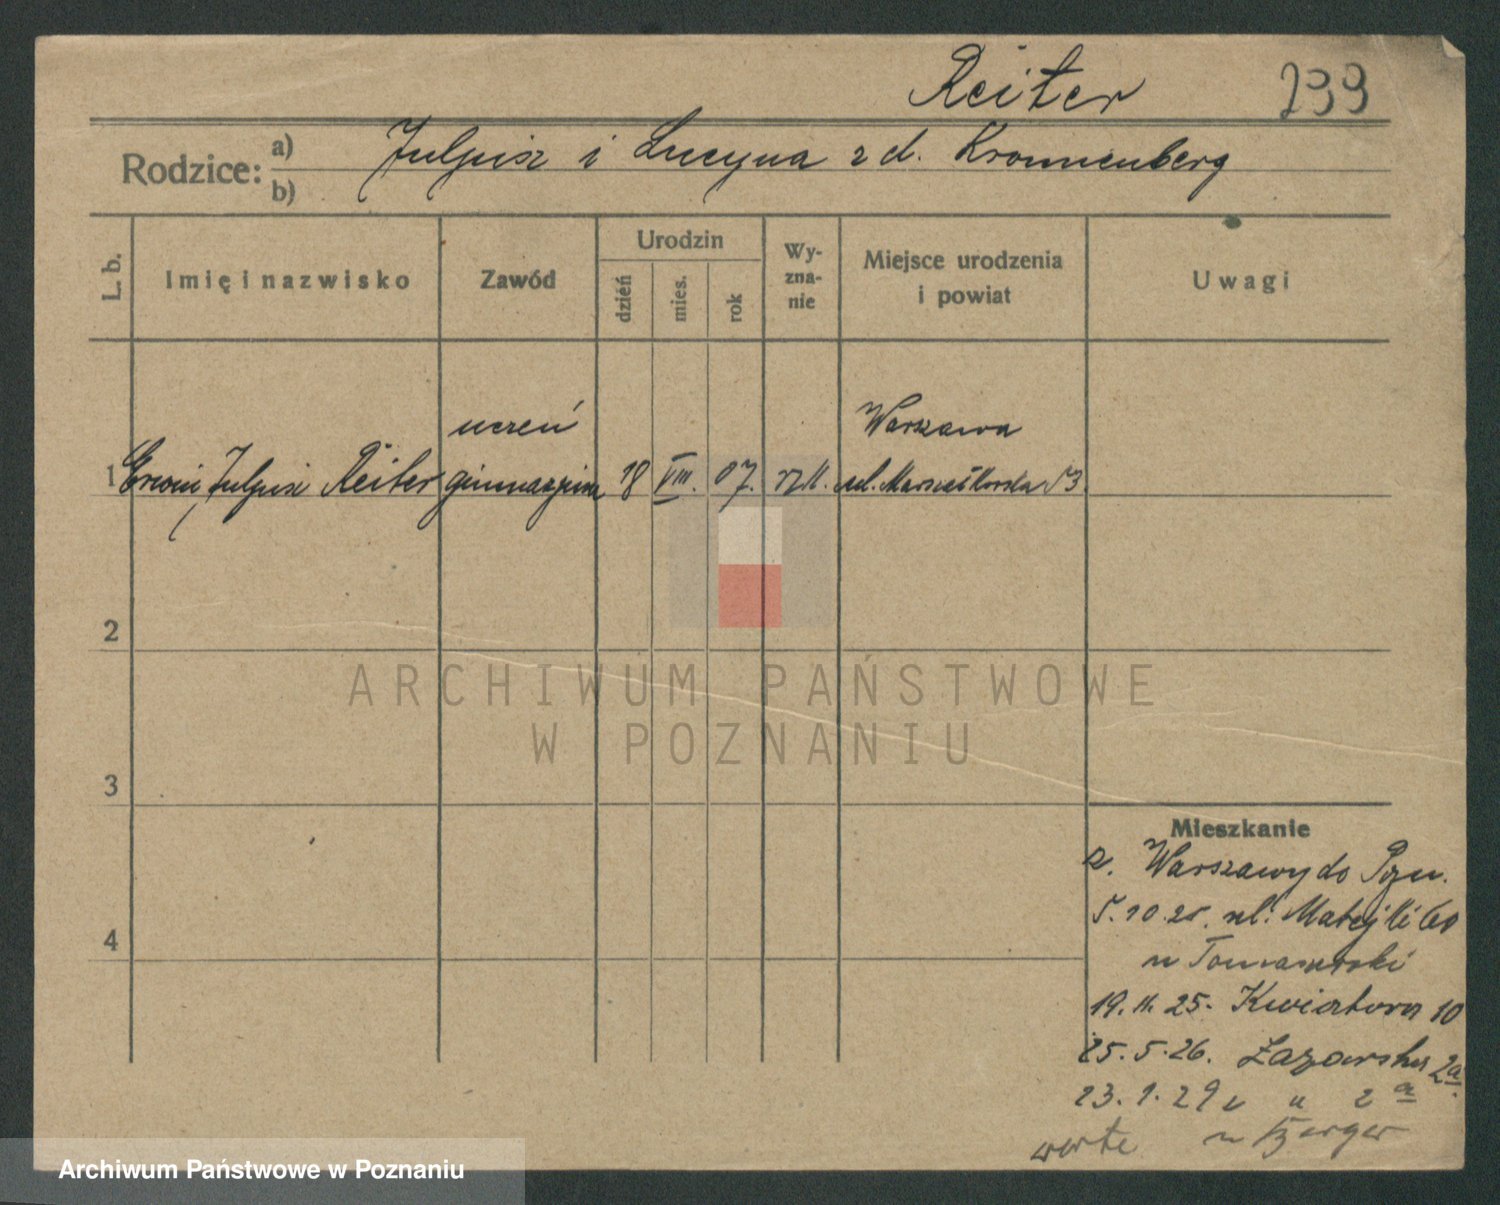 Reiter 239
Rodzice:
a) Juljusz i Lucyna z d. Kronnenberg
b)
L. b.
Imię i nazwisko
Zawód
Urodzin
dzień
mies.
rok
Wy-
zna-
nie
Miejsce urodzenia
i powiat
Uwagi
uczeń
Warszawa
1 Erwin Juljusz Reiter gimnazjum 18 VIII. 07. rz k. ul. Marszałkowska
2
3
4
ARCHIWUM PAŃSTWOWE
W POZNANIU
Mieszkanie
z. Warszawy do Pozn.
5.10.25. ul. Matejki 60
u Tomaszewski
19.11.25. Kwiatowa 10
25.5.26. Łazarska 2a
23.1.29 " 2a
verte u Berger
Archiwum Państwowe w Poznaniu